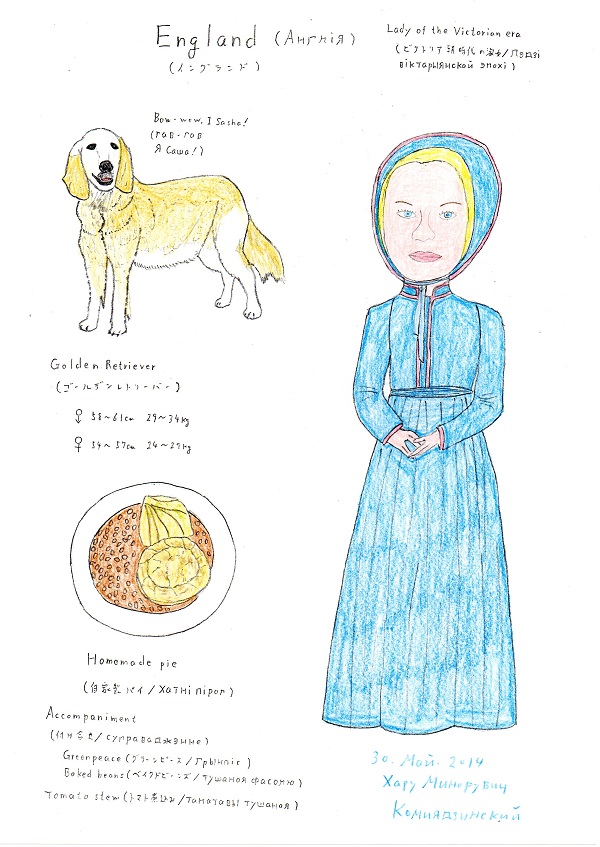 England (Англія)
(イングランド)
Lady of the Victorian era
(ビクトリア朝時代の淑女/Лэдзі
віктарыянской эпохі)
Bow-wow, I Sasha!
(гав-гав
Я Саша!)
Golden Retriever
(ゴールデンレトリーバー)
♂ 58~61cm 29~34kg
♀ 54~57cm 24~29kg
Homemade pie
(自家製パイ/Хатні пірог)
Accompaniment
(付け合せ/суправаджэнне)
Greenpeace (グリーンピース/Грынпіс)
Baked beans (ベイクドビーンズ/тушаноя фасолю)
Tomato stew (トマト煮込み/таматавы тушаноя)
30. Май. 2014
Хару Минорувич
Комиядзинский